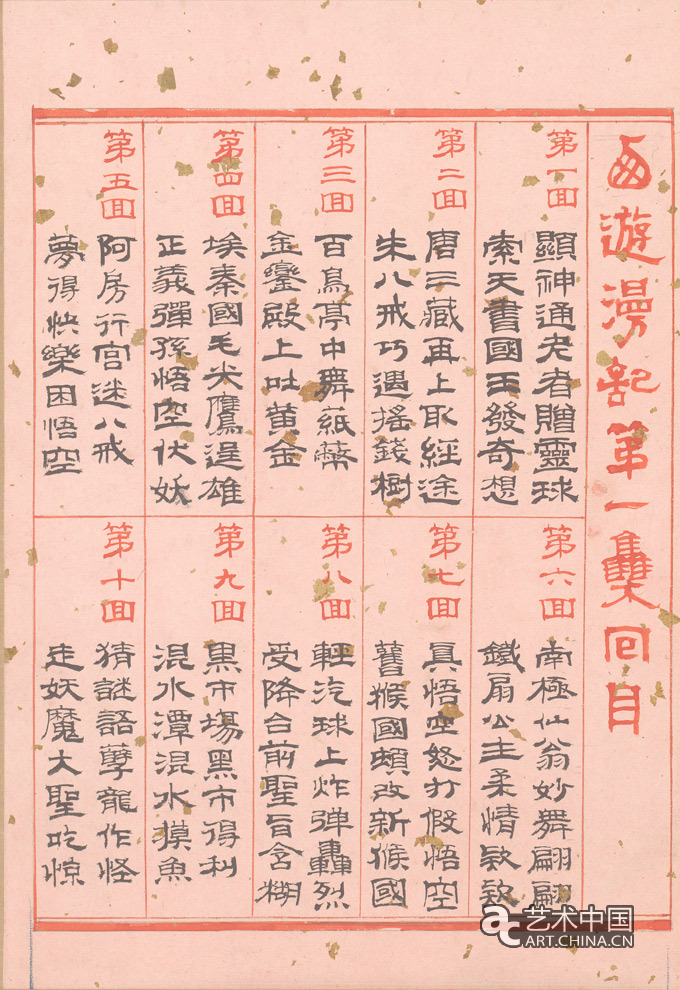 西遊漫記第一集回目
第一回
顯神通老者贈靈球
索天書國王發奇想
第二回
唐三藏再上取經途
朱八戒巧遇搖錢樹
第三回
百鳥亭中舞紙幣
金鑾殿上吐黃金
第四回
埃秦國毛尖鷹逞雄
正義彈孫悟空伏妖
第五回
阿房行宮迷八戒
夢得快樂困悟空
第六回
南極仙翁妙舞翩翩
鐵扇公主柔情款款
第七回
真悟空怒打假悟空
舊猴國頓改新候國
第八回
輕汽球上炸弹轟烈
受降台前聖旨含糊
第九回
黑市場黑市得利
混水潭混水摸魚
第十回
猜謎語孽龍作怪
走妖魔大聖吃惊
艺术中国
ART.CHINA.CN